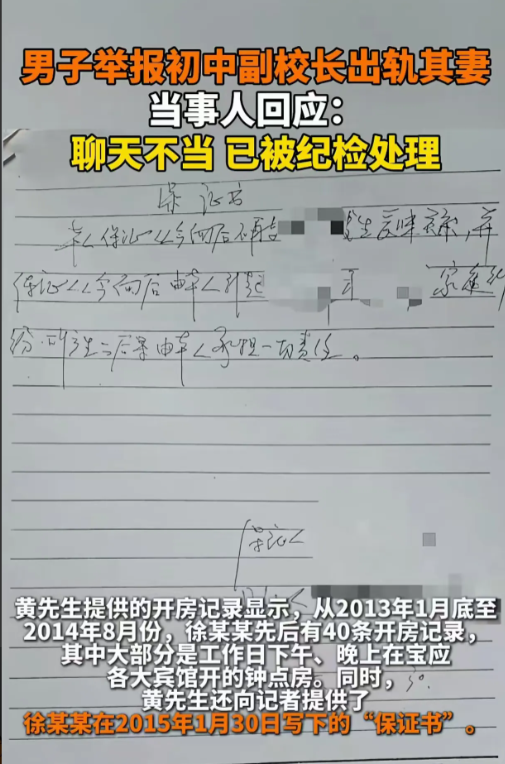 男子举报初中副校长出轨其妻
当事人回应：
聊天不当 已被纪检处理
保证书
本人保证从今向后不再与 发生暧昧关系，并
保证从今向后由本人引起 家庭纠
纷，所产生一切后果由本人承担一切责任。
保证人
黄先生提供的开房记录显示，从2013年1月底至
2014年8月份，徐某某先后有40条开房记录，
其中大部分是工作日下午、晚上在宝应
各大宾馆开的钟点房。同时，
黄先生还向记者提供了
徐某某在2015年1月30日写下的“保证书”。